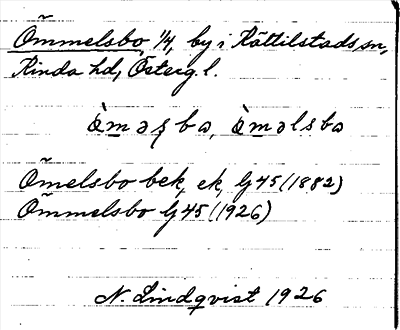 Õmmelsbo 1/4, by i Kättilstads sn,
Kinda hd, Östergl.
òməʂba, òməlsba
Õmelsbo bek, ek, Lj 45 (1882)
Õmmelsbo Lj 45 (1926)
N. Lindqvist 1926